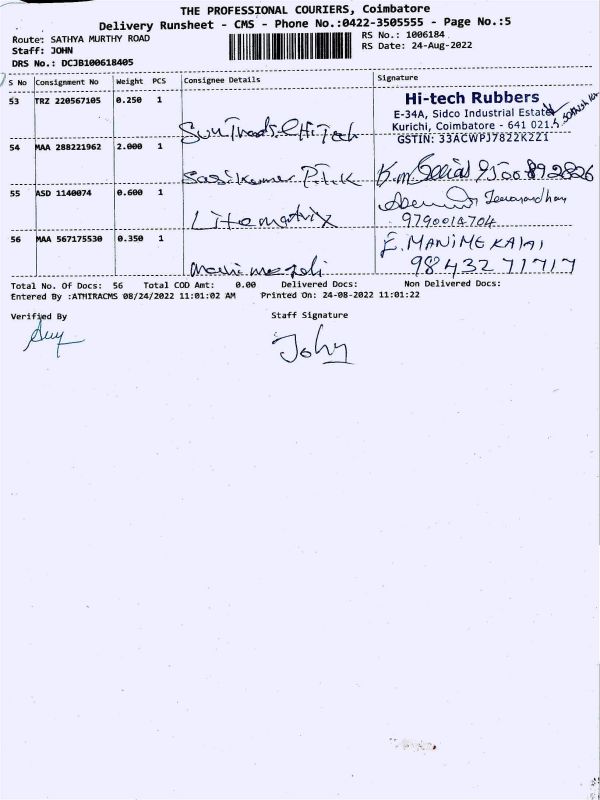 THE PROFESSIONAL COURIERS, Coimbatore
Delivery Runsheet - CMS - Phone No.:0422-3505555 - Page No.:5
Route: SATHYA MURTHY ROAD
RS No.: 1006184
Staff: JOHN
RS Date: 24-Aug-2022
DRS No.: DCJB100618405
S No Consignment No Weight PCS Consignee Details Signature
53 TRZ 220567105 0.250 1
Hi-tech Rubbers
E-34A, Sidco Industrial Estate
Kurichi, Coimbatore - 641 021.
GSTIN: 33ACWPJ7822K2Z1
54 MAA 288221962 2.000 1
Sasikumar
55 ASD 1140074 0.600 1
Litematrix
9790014704
56 MAA 567175530 0.350 1
E. MANIMEKALAI
9843271717
Total No. Of Docs: 56 Total COD Amt: 0.00 Delivered Docs: Non Delivered Docs:
Entered By :ATHIRACMS 08/24/2022 11:01:02 AM Printed On: 24-08-2022 11:01:22
Verified By Staff Signature
John